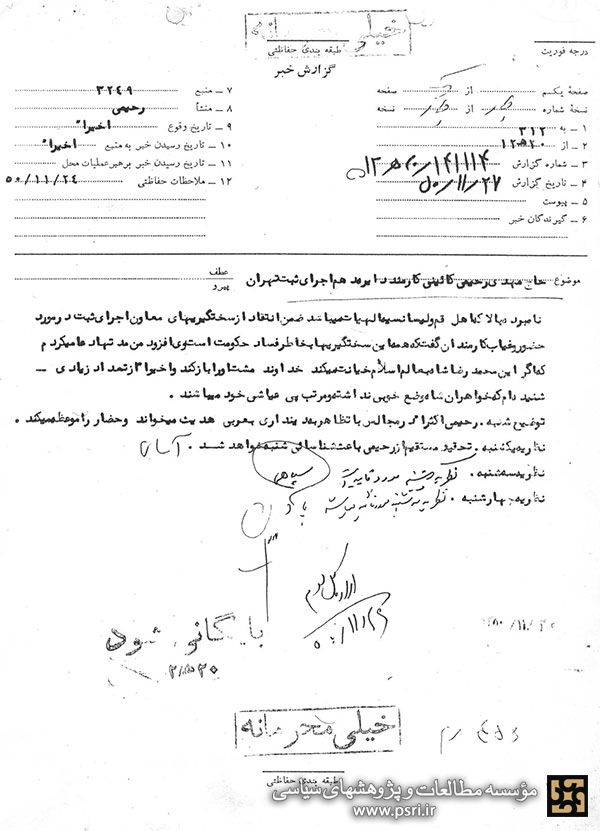 خیلی محرمانه
طبقه بندی حفاظتی
گزارش خبر
درجه فوریت
صفحه یکم از صفحه
نسخهٔ شماره از نسخه
۱ – به ۳۱۲
۲ – از ۱۲ه۲۰
۳ – شماره گزارش
۴ – تاریخ گزارش
۵ – پیوست
۶ – گیرندگان خبر
۷ – منبع ۳۲۴۹
۸ – منشأ رحیمی
۹ – تاریخ وقوع اخیراً
۱۰ – تاریخ رسیدن خبر به منبع اخیراً
۱۱ – تاریخ رسیدن خبر برهبر عملیات محل
۱۲ – ملاحظات حفاظتی ۵۰/۱۱/۲۴
موضوع حاج مهدی رحیمی کائینی کارمند دایره دهم اجرای ثبت تهران
عطف
پیرو
نامبرده بالا که اهل قم و لیسانسیه الهیات میباشد ضمن انتقاد از سختگیریهای معاون اجرای ثبت در مورد
حضور و غیاب کارمندان گفت که همه این سختگیریها بخاطر فساد حکومت است وی افزود من مدتهاد عا میکردم
که اگر این محمد رضا شاه به عالم اسلام خیانت میکند خداوند مشت او را باز کند و اخیراً از تعداد زیادی –
شنیده ام که خواهران شاه وضع خوبی نداشته و مرتب پی عیاشی خود میباشند .
توضیح شنبه . رحیمی اکثراً در مجالس با تظاهر به دینداری بعربی حدیث میخواند و حضار را موعظه میکند .
نظریه یکشنبه . تحقیق مستقیم از رحیمی باعث شناسائی شنبه خواهد شد . آسان
نظریه سه شنبه . نظریه یکشنبه مورد تایید است
نظریه چهارشنبه . نظریه سه شنبه مورد تایید است
اداره کل سوم
۵۰/۱۱/۲۹
بایگانی شود
خیلی محرمانه
طبقه بندی حفاظتی
مؤسسه مطالعات و پژوهشهای سیاسی
www.psri.ir